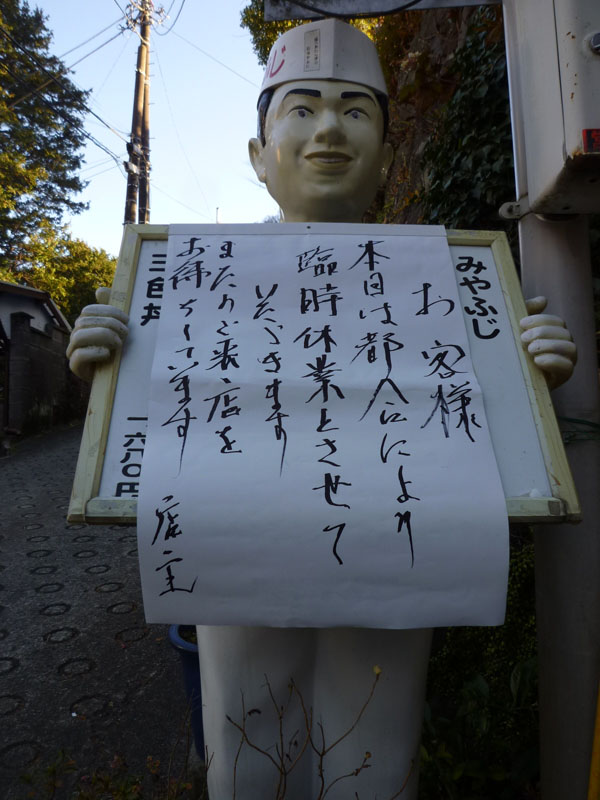 お客様
本日は都合により
臨時休業とさせて
いただきます
またのご来店を
お待ちしています
店主
みやふじ
三色丼
一六八〇円
じ